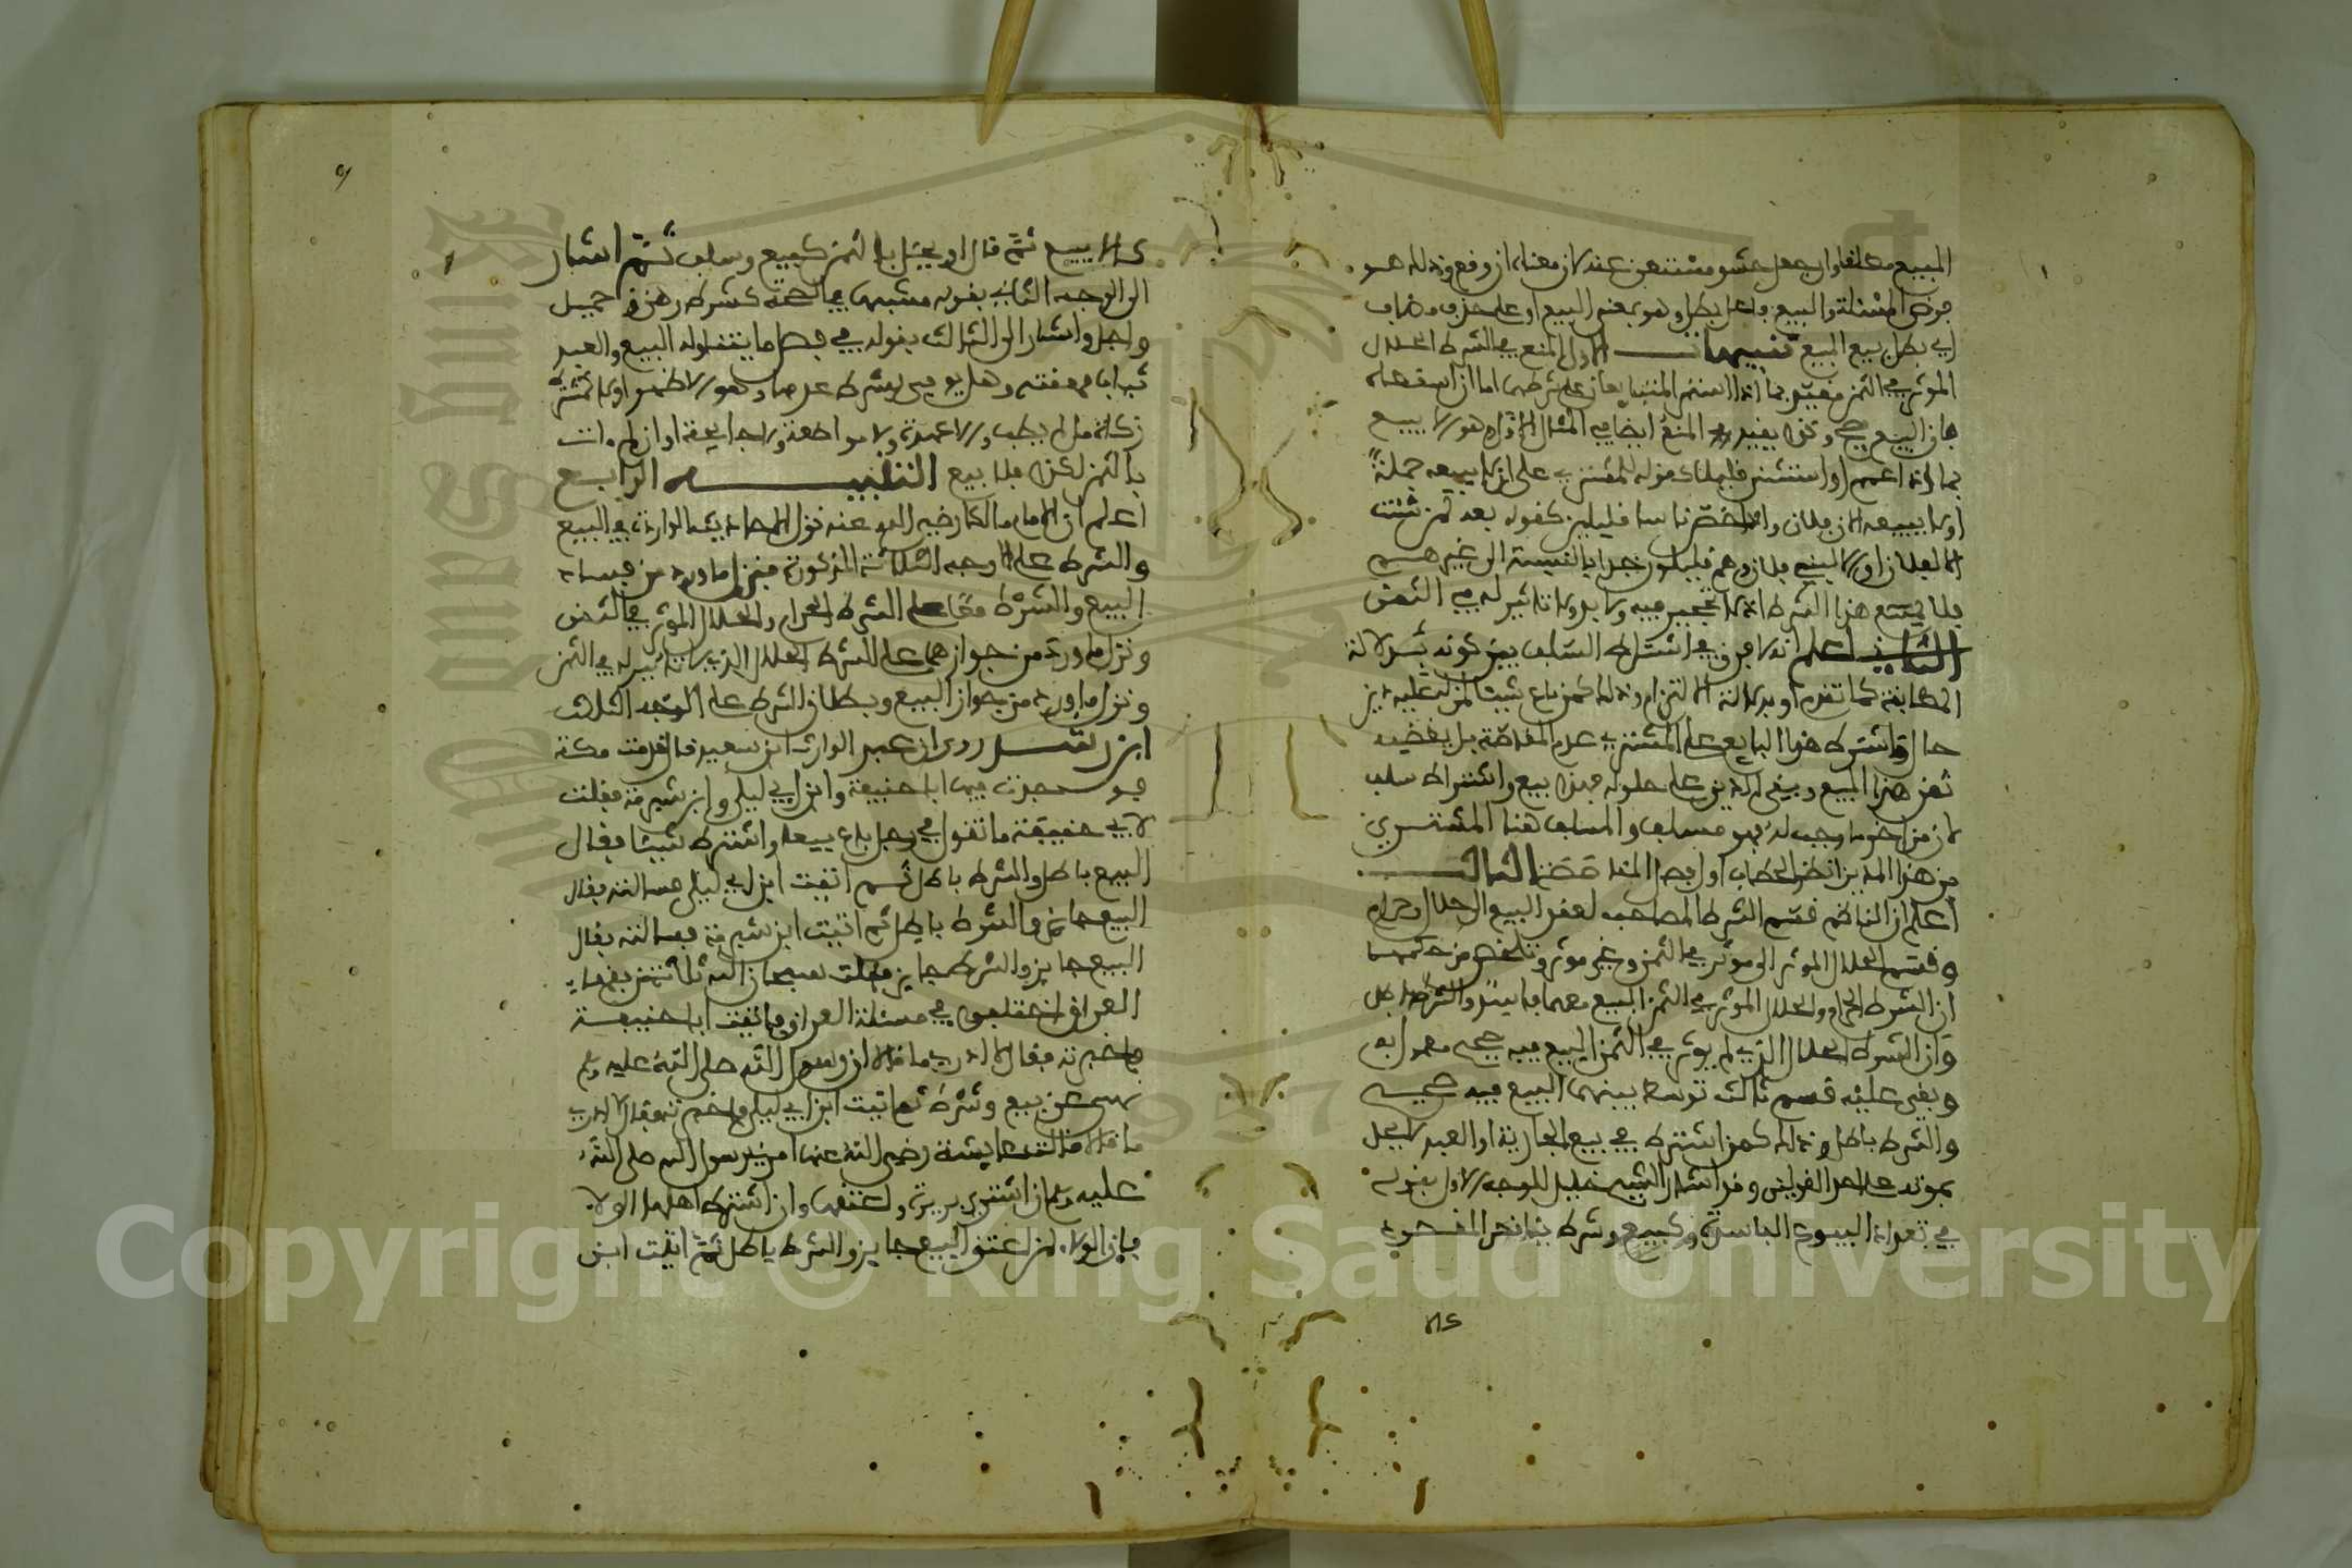 المبيع مطلقا وان جعل حشو مستغنى عنه لان معناه ان وقع وذلك هو
فرض المسئلة والبيع فاعل بطل وهو بمعنى البيع او على حذف مضاف
اي بطل بيع المبيع تنبيهات الاول المنع في الشرط الحلال
الموثر في الثمن مقيد بما اذا استمر المتبايعان على شرطهما اما ان اسقطاه
فان البيع يصح وكذلك يقيد المنع ايضا في المثال الاول وهو لا يبيع
بما اذا عمم او استثنى قليلا كقوله للمشتري على ان لا يبيعه جملة
او لا يبيعه الا من فلان واما ان خصص ناسا قليلين كقوله بعه لمن شئت
الا لفلان او الا لبني فلان وهم قليلون جدا بالنسبة الى غيرهم
فلا يمنع هذا الشرط اذ لا تحجير فيه ولا تاثير له في الثمن
الثاني اعلم انه لا فرق في اشتراط السلف بين كونه بدلالة
المطابقة كما تقدم او بدلالة الالتزام وذلك كمن باع شيئا لمن له عليه دين
حال واشترط هذا البايع على المشتري عدم المقاصة بل يقضيه
ثمن هذا المبيع ويبقى الدين على حلوله فهذا بيع واشتراط سلف
لان من اخر ما وجب له فهو مسلف والمسلف هنا المشتري
من هذا المدين انظر الحطاب اول فصل المقاصة الثالث
اعلم ان الناظم قسم الشرط المصاحب لعقد البيع الى حلال وحرام
وقسم الحلال الموثر الى موثر في الثمن وغير موثر وتلخص من حكمهما
ان الشرط الحرام والحلال الموثر في الثمن البيع معهما فاسد والشرط باطل
وان الشرط الحلال الذي لم يوثر في الثمن البيع فيه صحيح معمول به
وبقي عليه قسم ثالث توسط بينهما البيع فيه صحيح
والشرط باطل وذلك كمن اشترط في بيع الجارية او العبد
على احد القولين وقد اشار الشيخ خليل للوجه الاول بقوله
في تعداد البيوع الفاسدة وكبيع وشرط يناقض المقصود
كان لا يبيع ثم قال او يخل بالثمن كبيع وسلف ثم اشار
الى الوجه الثاني بقوله مشبها في الصحة كشرط رهن وحميل
واجل واشار الى الثالث بقوله في فصل ما يتناوله البيع والعبد
ثياب مهنته وهل يوفى بشرط عدمها وهو الاظهر او لا كمشترط
زكاة ما لم يطب ولا عهدة ولا مواضعة ولا جائحة او ان لم يات
بالثمن لكذا فلا بيع التنبيه الرابع
اعلم ان الامام مالكا رضي الله عنه نزل الاحاديث الواردة في البيع
والشرط على الاوجه الثلاثة المذكورة فنزل ما ورد من فساد
البيع والشرط معا على الشرط الحرام والحلال الموثر في الثمن
ونزل ما ورد من جوازهما على الشرط الحلال الذي لا تاثير له في الثمن
ونزل ما ورد من جواز البيع وبطلان الشرط على الوجه الثالث
ابن رشد روى ان عبد الوارث ابن سعيد قال قدمت مكة
فوجدت فيها ابا حنيفة وابن ابي ليلى وابن شبرمة فقلت
لابي حنيفة ما تقول في رجل باع بيعا واشترط شيئا فقال
البيع باطل والشرط باطل ثم اتيت ابن ابي ليلى فسالته فقال
البيع جائز والشرط باطل ثم اتيت ابن شبرمة فسالته فقال
البيع جايز والشرط جايز فقلت سبحان الله ثلاثة من فقهاء
العراق اختلفوا في مسئلة فاتيت ابا حنيفة
فاخبرته فقال لا ادري ما قالا ان رسول الله صلى الله عليه وسلم
نهى عن بيع وشرط ثم اتيت ابن ابي ليلى فاخبرته فقال لا ادري
ما قالا قالت عايشة رضي الله عنها امرني رسول الله صلى الله
عليه وسلم ان اشتري بريرة واعتقها وان اشترط اهلها الولاء
فان الولاء لمن اعتق البيع جايز والشرط باطل ثم اتيت ابن
Copyright © King Saud University
1957